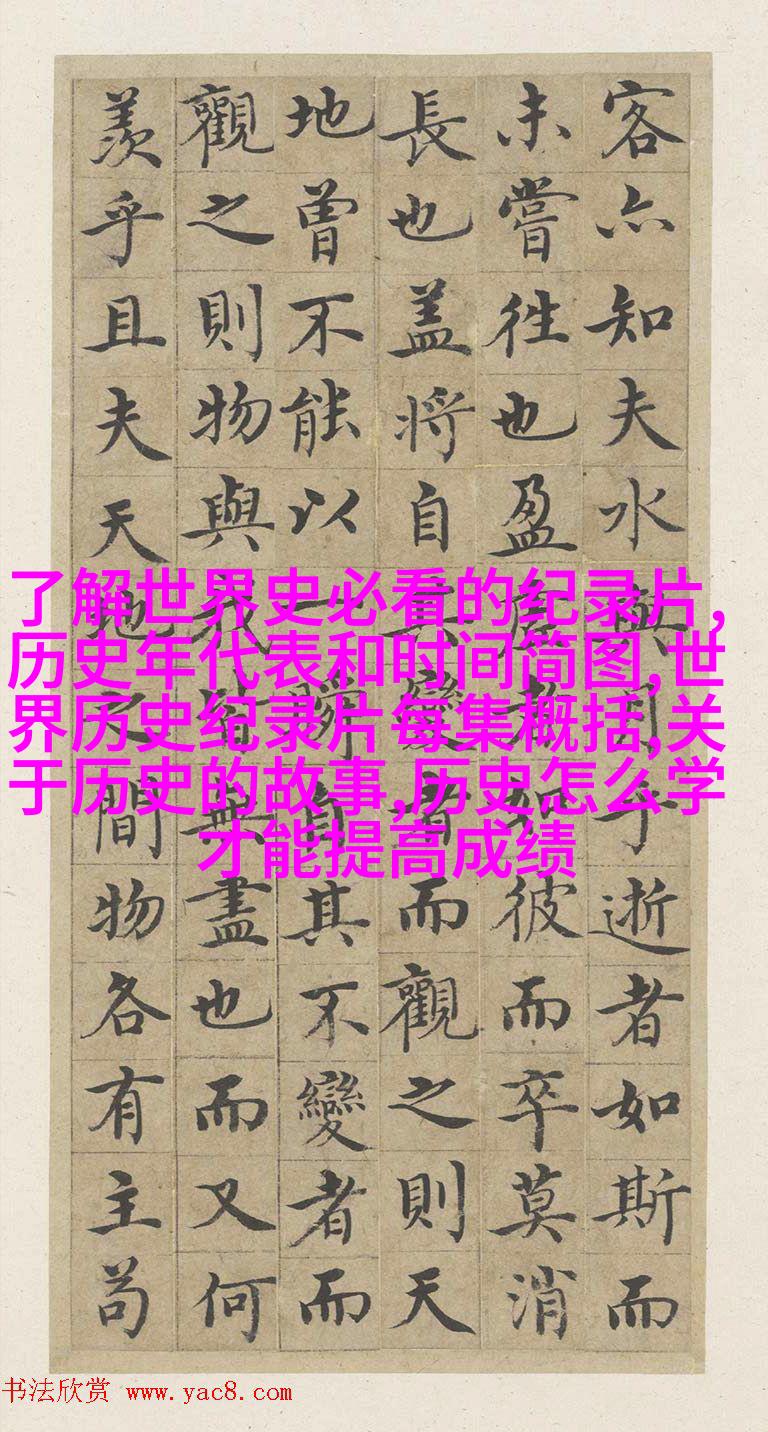 客亦知夫水與月乎逝者如斯而
未嘗往也盈虛者如彼而卒莫消
長也盖將自其變者而觀之則天
地曾不能以一瞬自其不變者而
觀之則物與我皆無盡也而又何
羨乎且夫天地之間物各有主苟
了解世界史必看的纪录片,
历史年代表和时间简图,世
界历史纪录片每集概括,关
于历史的故事,历史怎么学
才能提高成绩
书法欣赏 www.yac8.com